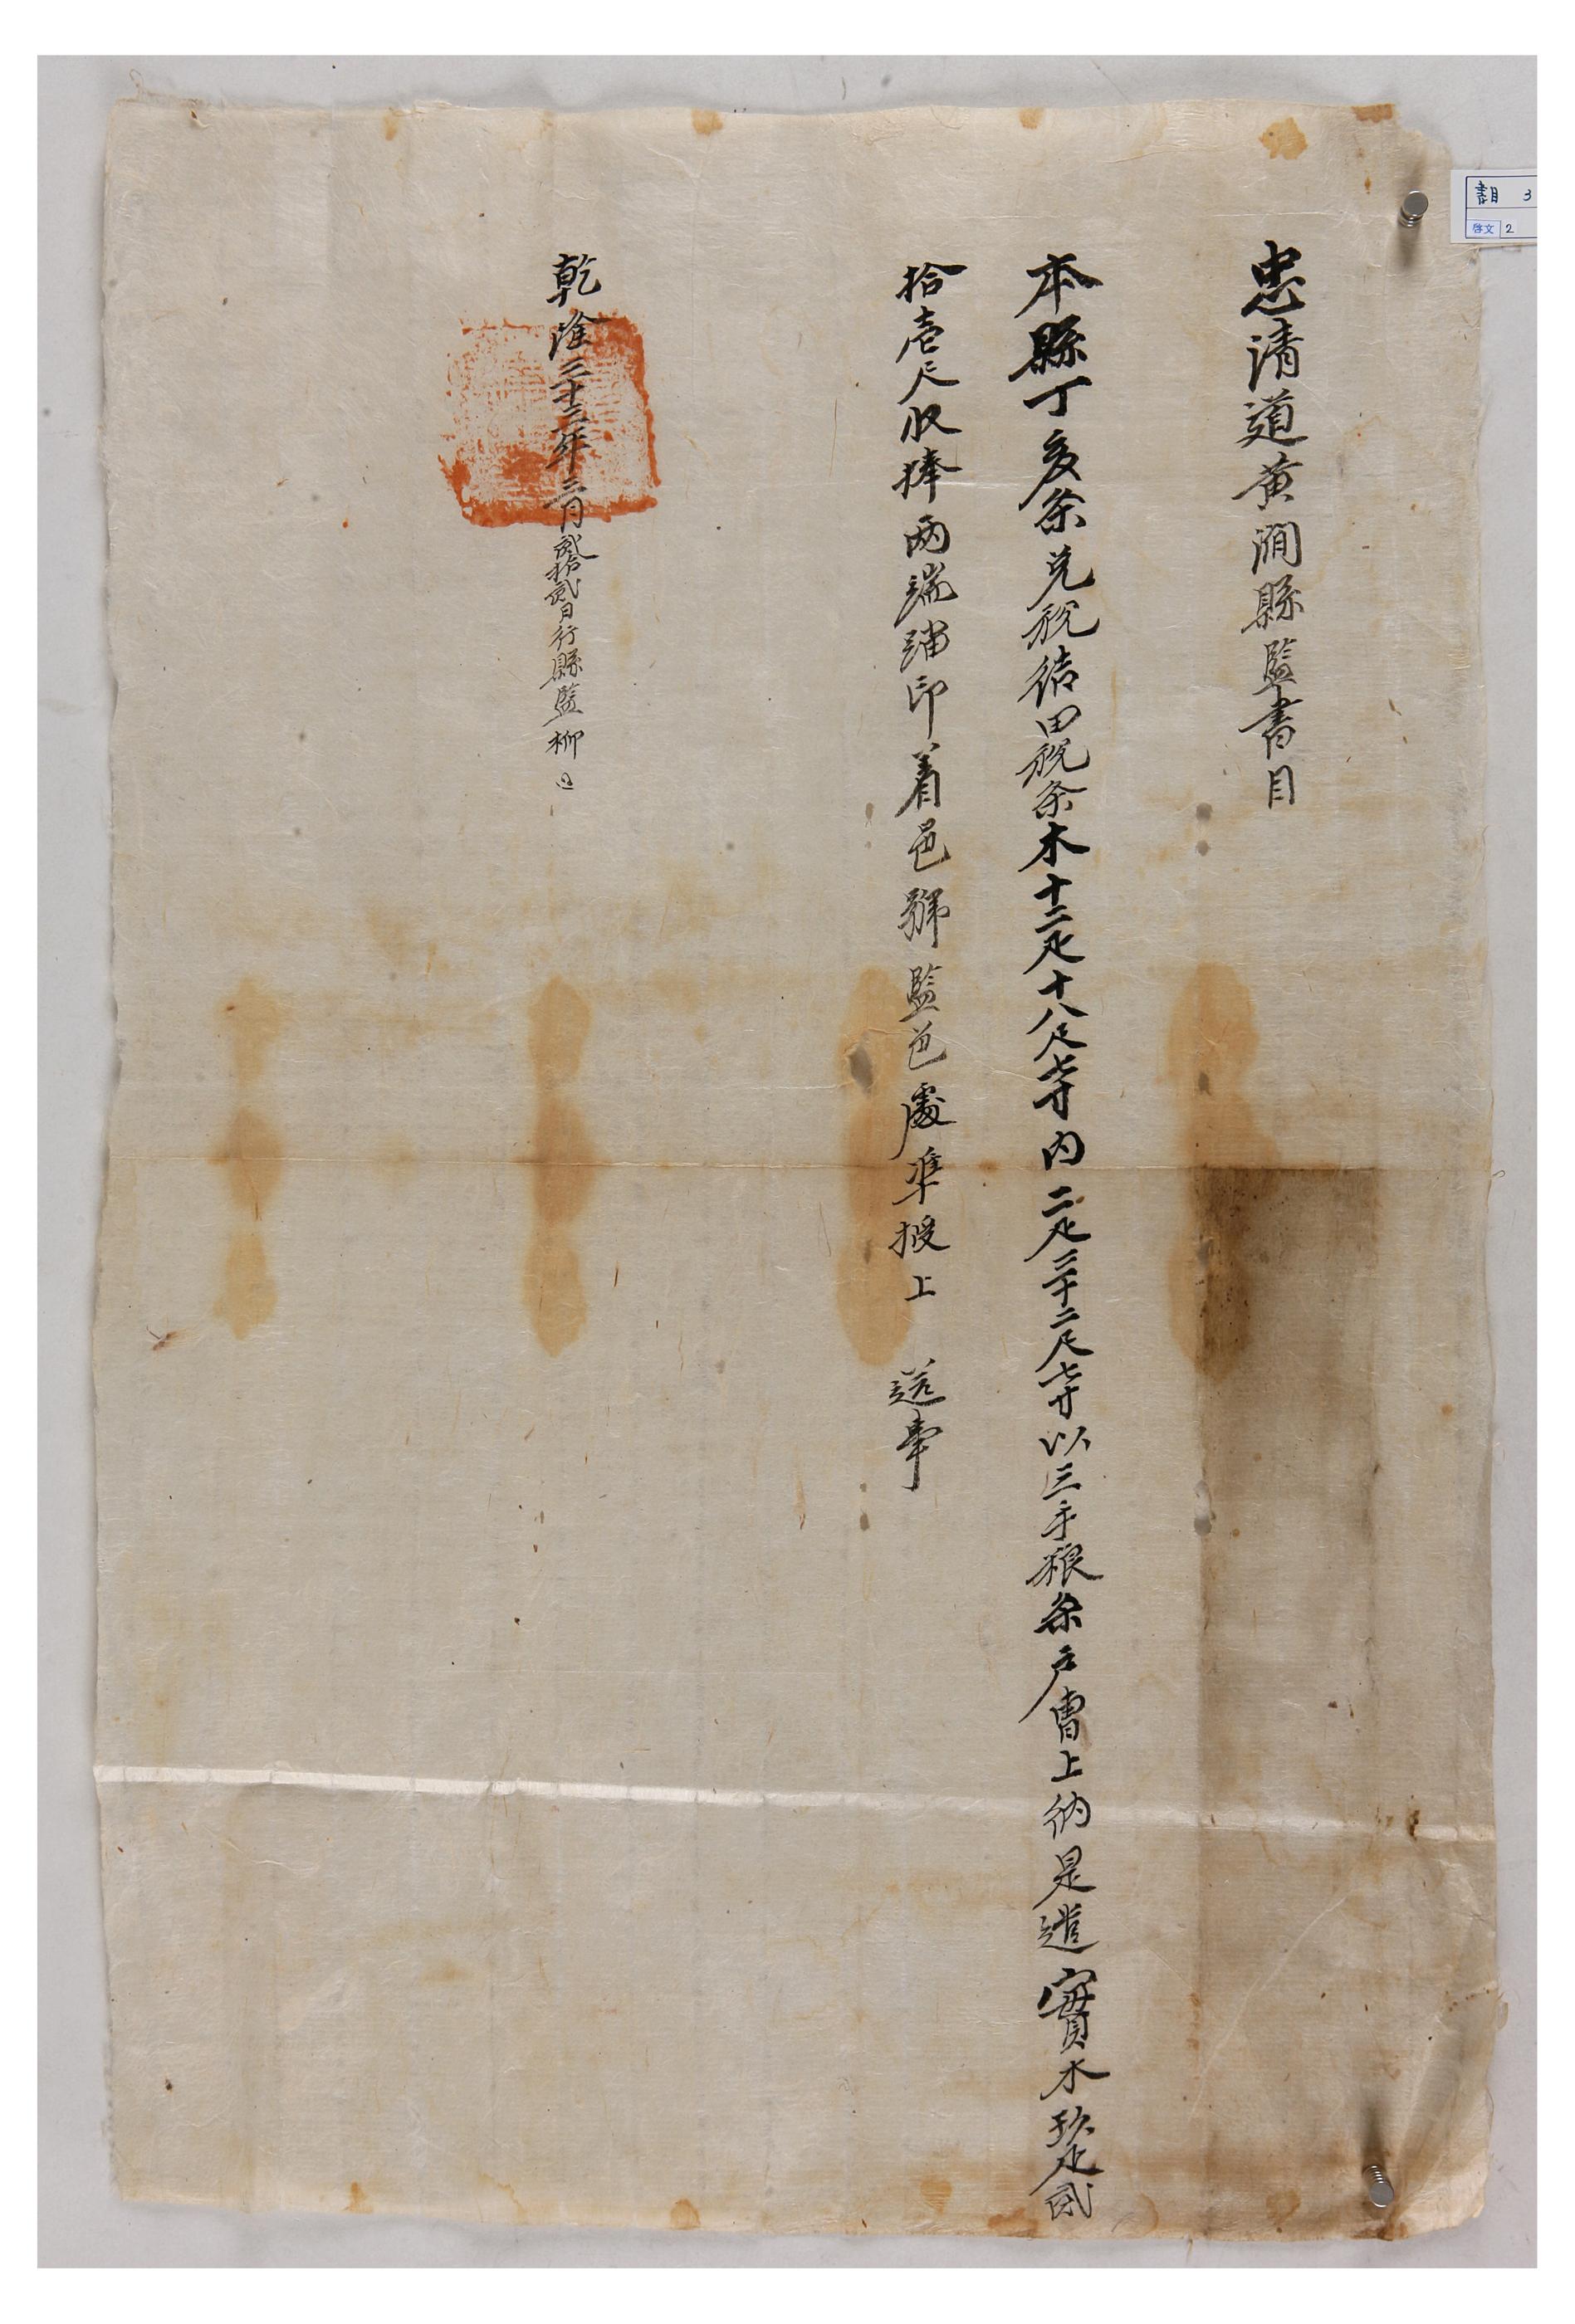 忠清道黃澗縣監書目
本縣丁亥条免稅結田稅条木十二疋十八尺七寸內二疋三十二尺七寸以三手粮条戶曹上納是遣實木玖疋貳
拾壹尺收捧兩端踏印着邑號監色處準授上 送事
乾隆三十三年三月貳拾貳日行縣監柳
書目 3
啓文 2